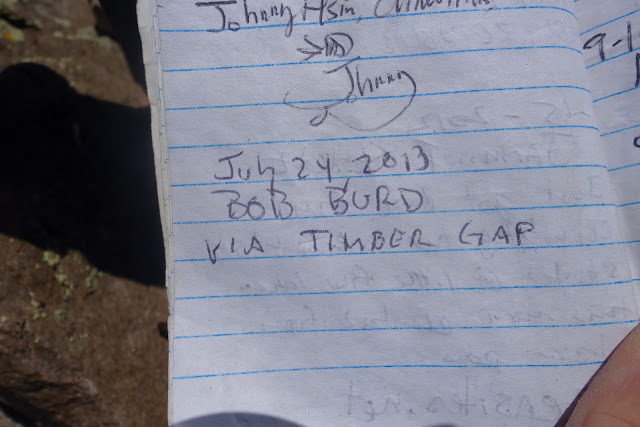 Johnny Hsin,
Jhnny
July 24, 2013
BOB BURD
VIA TIMBER GAP
9-1